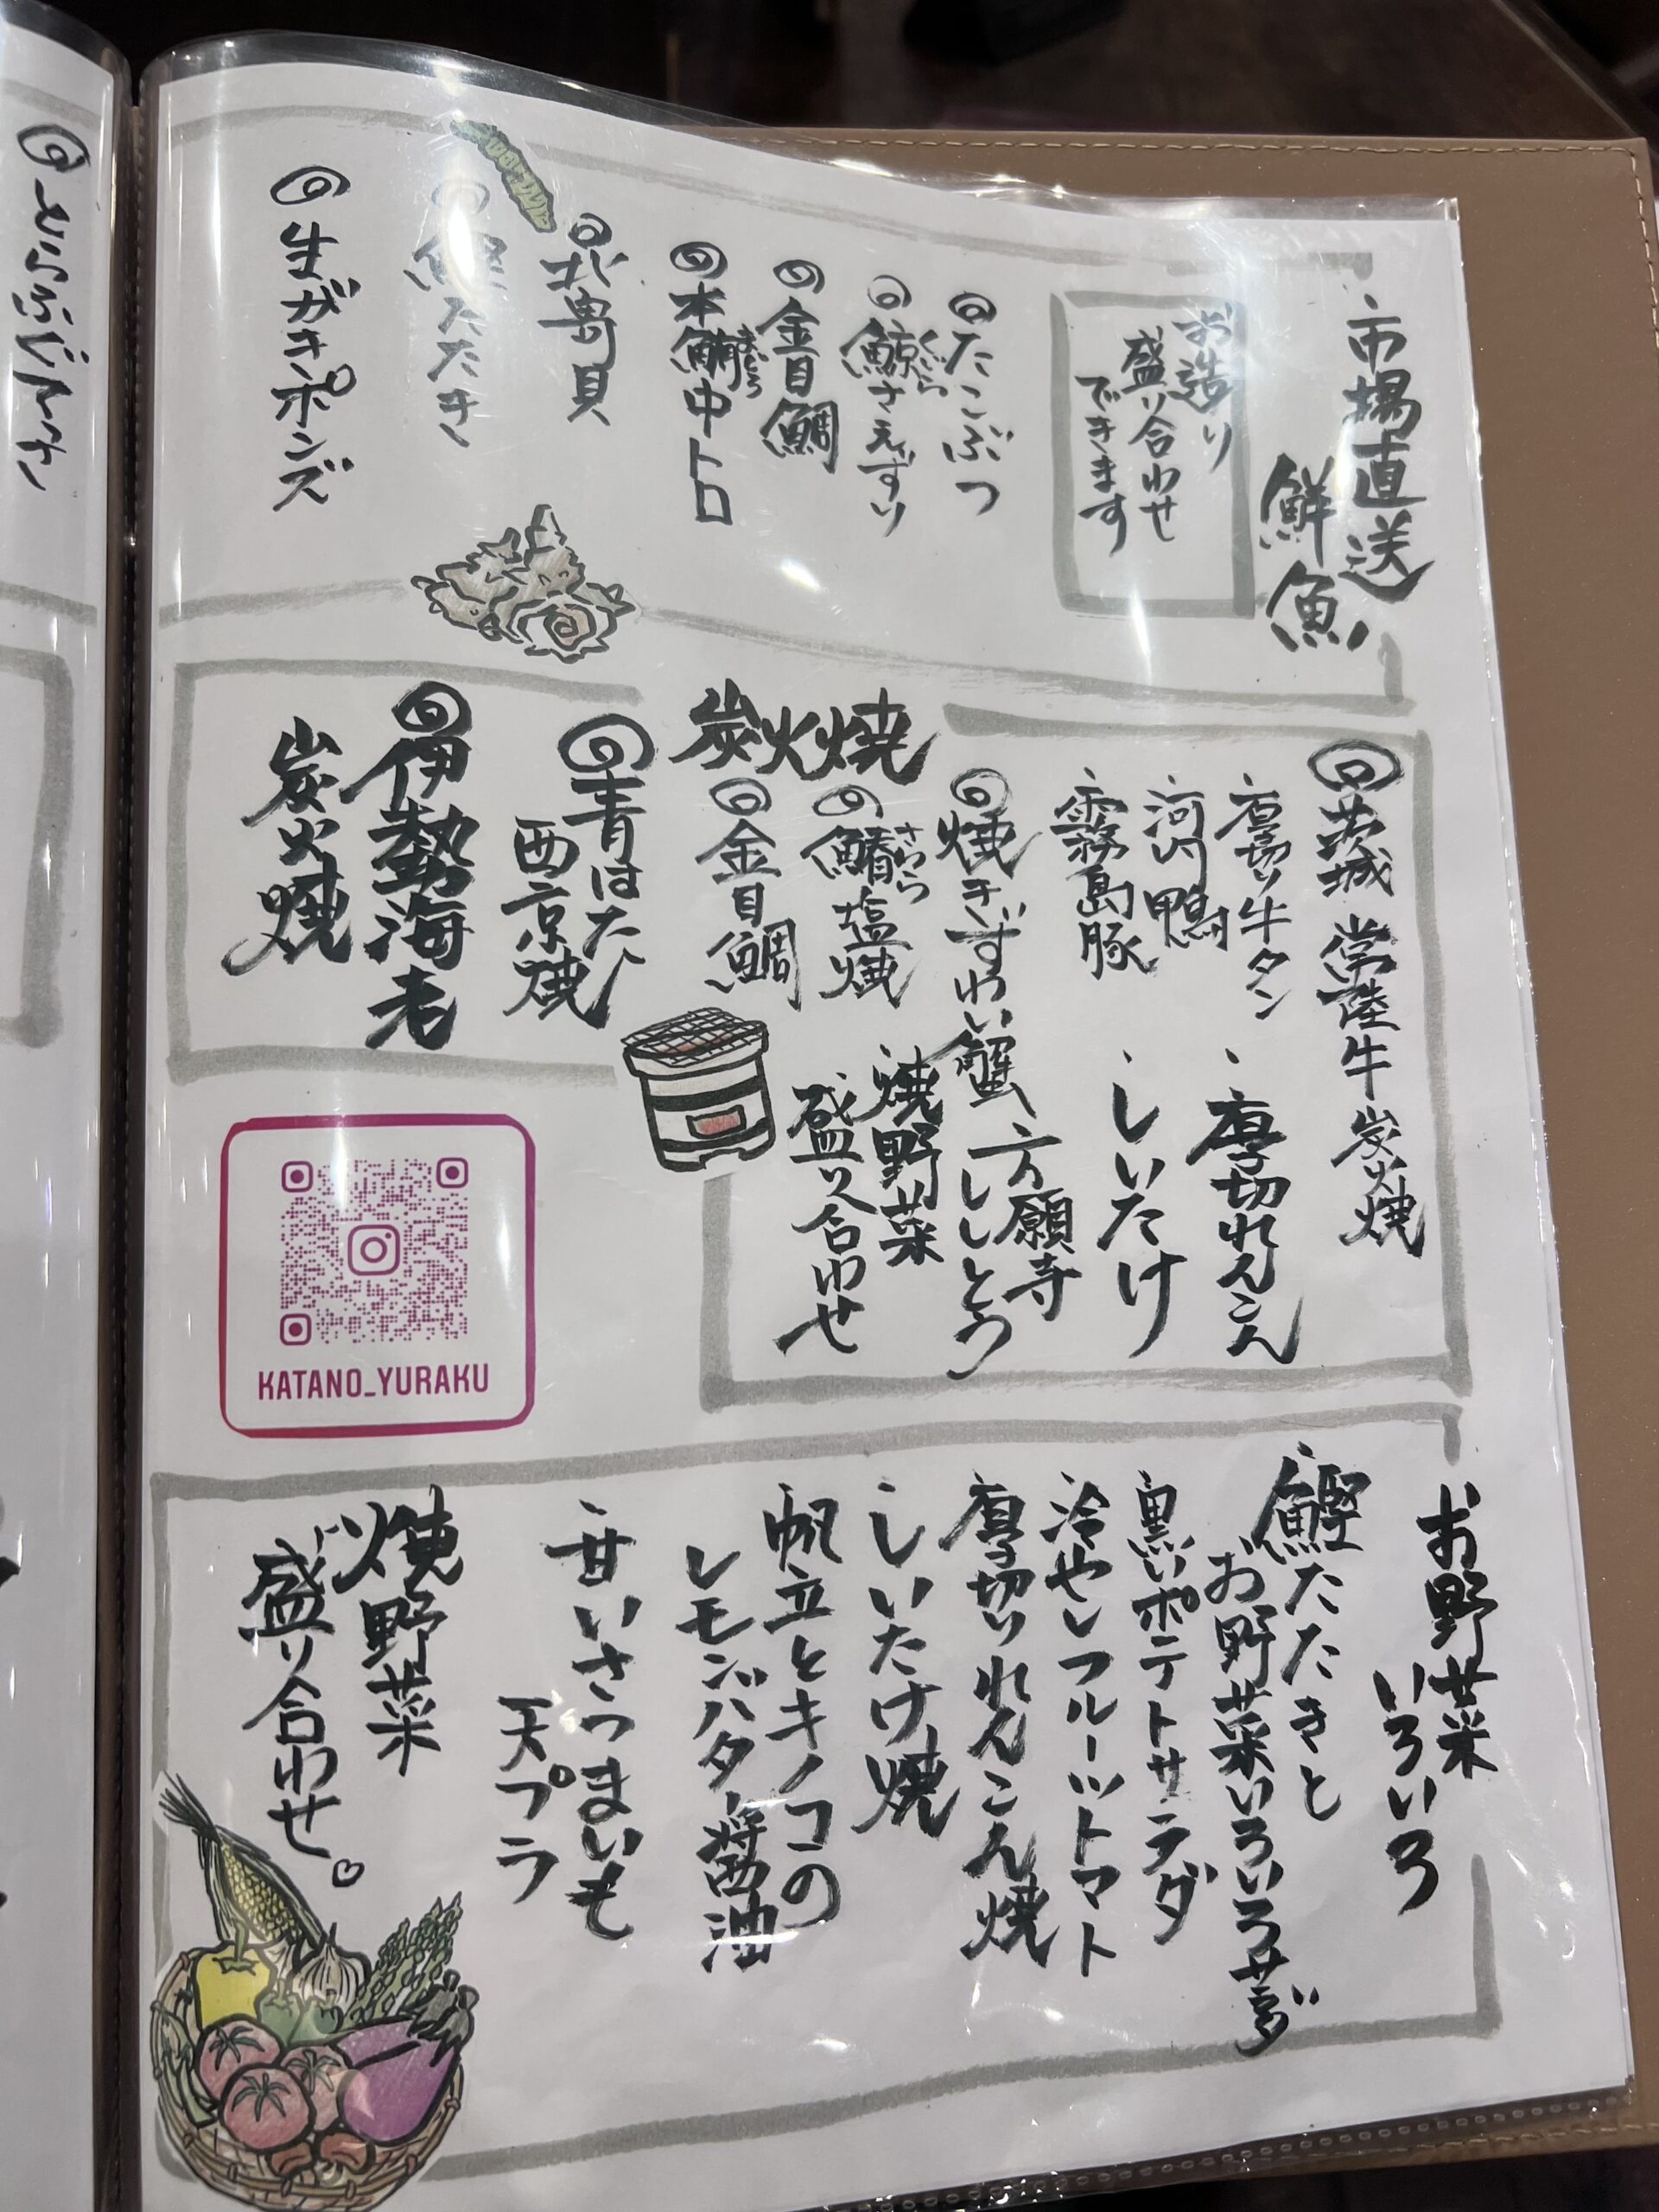 市場直送
鮮魚
お造り
盛り合わせ
できます
たこぶつ
鯨さえずり
くじら
金目鯛
本鮪中トロ
まぐろ
北寄貝
鰹たたき
生ガキポンズ
炭火焼
茨城 常陸牛 炭火焼
・厚切り牛タン
・河内鴨
・霧島豚
・厚切れんこん
・しいたけ
焼きずわい蟹
万願寺
ししとう
鰆塩焼
さわら
・焼野菜
盛り合わせ
金目鯛
青はた
西京焼
伊勢海老
炭火焼
KATANO_YURAKU
お野菜
いろいろ
・鰹たたきと
お野菜いろいろサラダ
・黒いポテトサラダ
・冷やしフルーツトマト
・厚切りれんこん焼
・しいたけ焼
・帆立とキノコの
レモンバター醤油
・甘いさつまいも
天プラ
・焼野菜
盛り合わせ♡